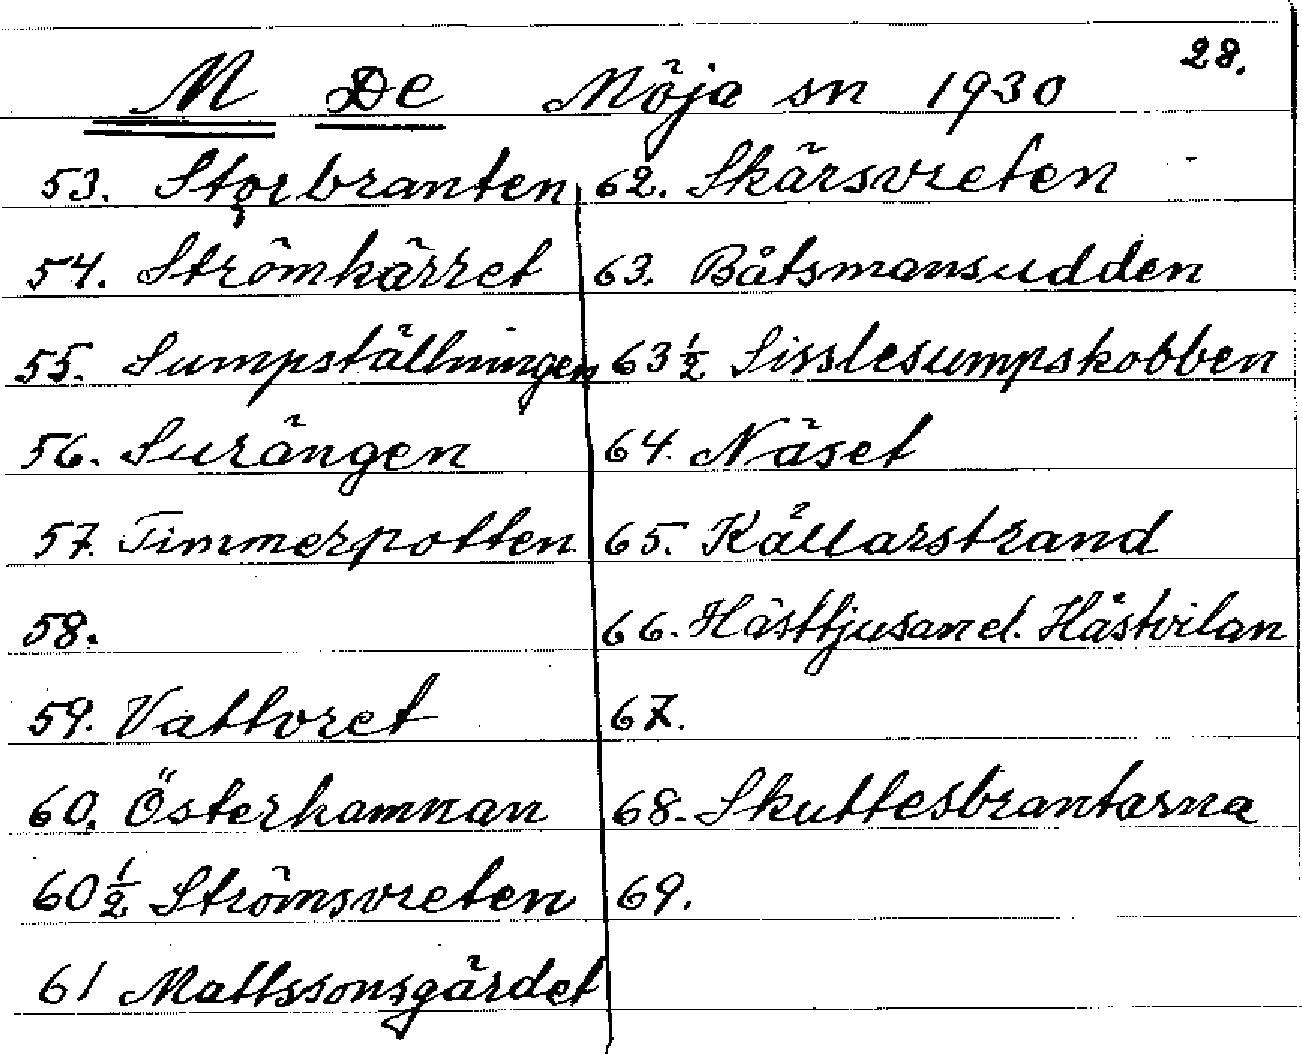 28.
M De Möja sn 1930
53. Storbranten
54. Strömkärret
55. Sumpställningen
56. Surängen
57. Timmerpotten
58.
59. Vattvret
60. Österhamnan
60½ Strömsvreten
61 Mattssonsgärdet
62. Skärsvreten
63. Båtsmansudden
63½ Sisslesumpskobben
64. Näset
65. Källarstrand
66. Hästtjusan el. Hästvilan
67.
68. Skuttesbrantarna
69.